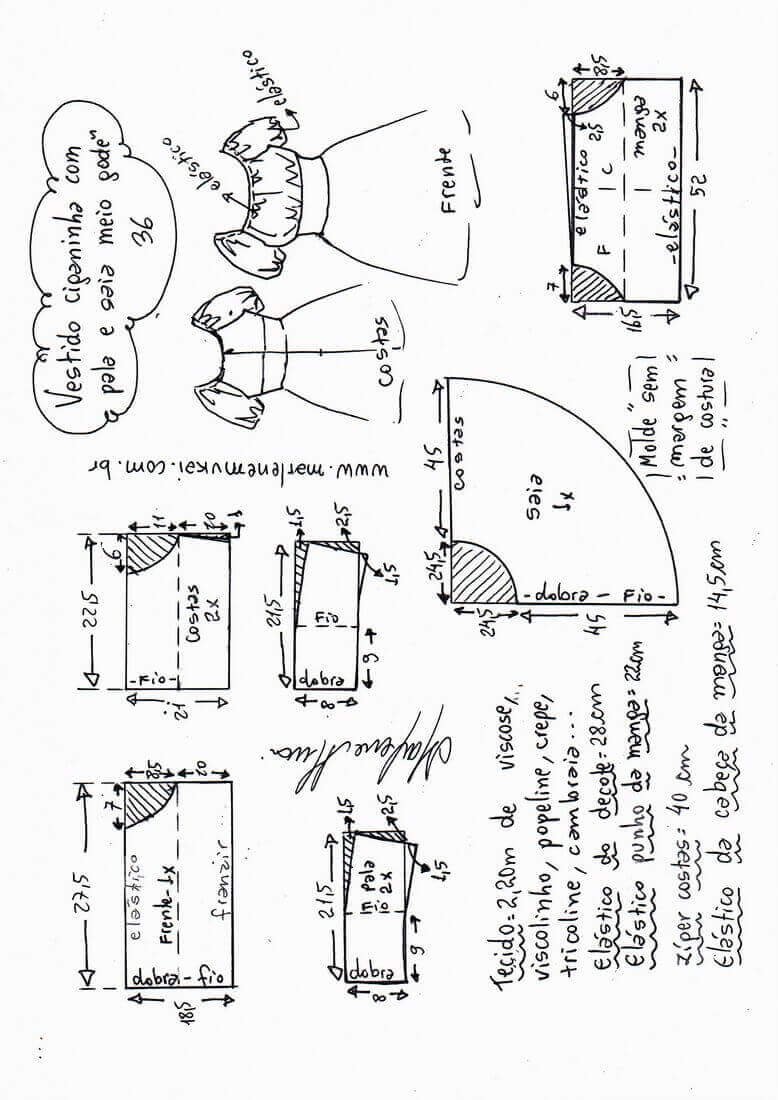 Vestido ciganinha com
pala e saia meio godê"
36
www.marlenemukai.com.br
elástico
elástico
elástico
Frente
costas
6
8,5
2,5
elástico
F | C
manga
2x
-elástico-
7
16,5
52
27,5
7
8,5
10
elástico
Frente-1x
franzir
dobra - fio
18,5
22,5
6
11
10
1
costas
2x
-Fio-
21
21,5
1,5
2,5
1,5
Fio
dobra
9
8
21,5
1,5
2,5
1,5
pala
Fio 2x
dobra
9
8
45
costas
24,5
saia
1x
24,5
-dobra - Fio-
45
Molde sem
margem
de costura
Tecido= 2,20m de viscose,
viscolinho, popeline, crepe,
tricoline, cambraia...
elástico do decote= 28cm
Elástico punho da manga= 22cm
zíper costas= 40 cm
Elástico da cabeça da manga= 14,5cm